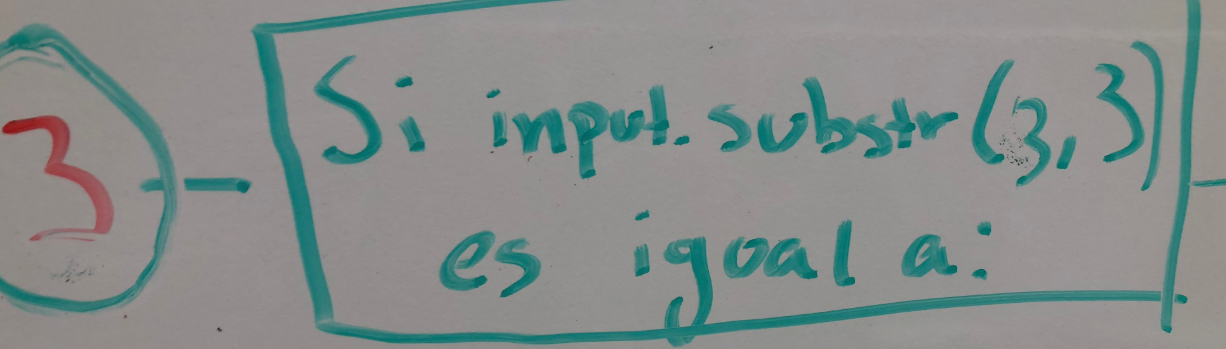 3
Si input.substr(3,3)
es igual a: